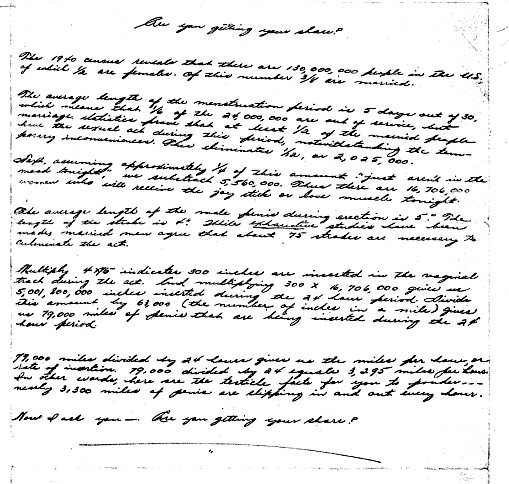 Are you getting your share?
The 1940 census reveals that there are 130,000,000 people in the U.S.
of which 1/2 are females. Of this number 3/8 are married.
The average length of the menstruation period is 5 days out of 30,
which means that 1/6 of the 24,000,000 are out of service, but
marriage statistics prove that at least 1/2 of the married people
have the sexual act during this period, notwithstanding the tem-
porary inconveniences. This eliminates 1/12, or 2,025,000.
Next, assuming approximately 1/4 of this amount "just aren't in the
mood tonight" we subtract 5,560,000. Thus there are 16,706,000
women who will receive the joy stick or love muscle tonight.
The average length of the male penis during erection is 5". The
length of the stroke is 4". While exhaustive studies have been
made, married men agree that about 75 strokes are necessary to
culminate the act.
Multiply 4 x 75 indicates 300 inches are inserted in the vaginal
track during the act. And multiplying 300 x 16,706,000 gives us
5,001,800,000 inches inserted during the 24 hour period. Divide
this amount by 63,000 (the number of inches in a mile) gives
us 79,000 miles of penis that are being inserted during the 24
hour period.
79,000 miles divided by 24 hours gives us the miles per hour, or
rate of insertion. 79,000 divided by 24 equals 3,295 miles per hour.
In other words, here are the testicle facts for you to ponder---
nearly 3,300 miles of penis are slipping in and out every hour.
Now I ask you — Are you getting your share?